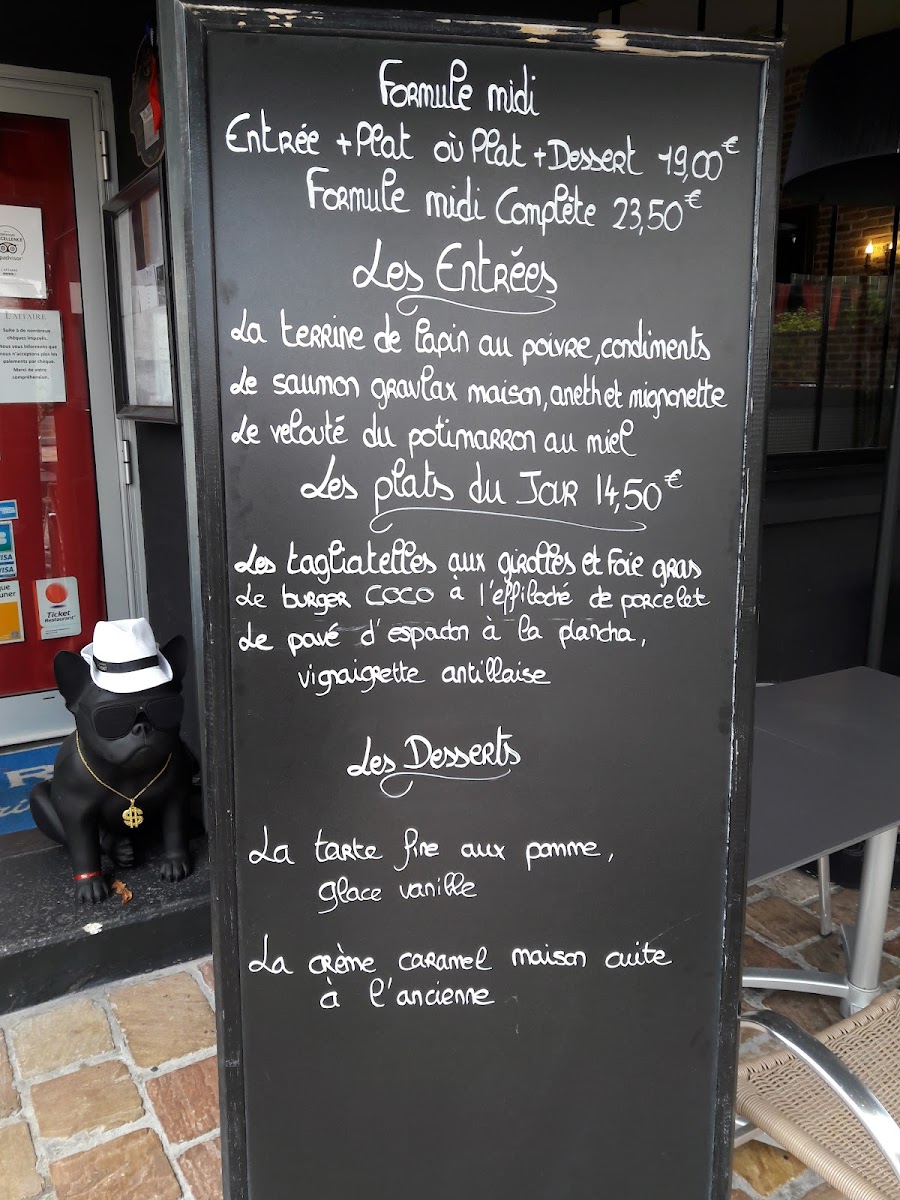 Formule midi
Entrée + Plat où Plat + Dessert 19,00€
Formule midi Complète 23,50€
Les Entrées
La terrine de lapin au poivre, condiments
Le saumon gravlax maison, aneth et mignonette
Le velouté du potimarron au miel
Les plats du Jour 14,50€
Les tagliatelles aux girolles et Foie gras
Le burger COCO à l'effiloché de porcelet
Le pavé d'espadon à la plancha,
vignaigrette antillaise
Les Desserts
La tarte fine aux pomme,
glace vanille
La crème caramel maison cuite
à l'ancienne
L'AFFAIRE
Suite à de nombreux
chèques impayés,
Nous vous informons que
nous n'acceptons plus les
paiements par chèque.
Merci de votre
compréhension.
VISA
VISA
Ticket
Restaurant
$
R